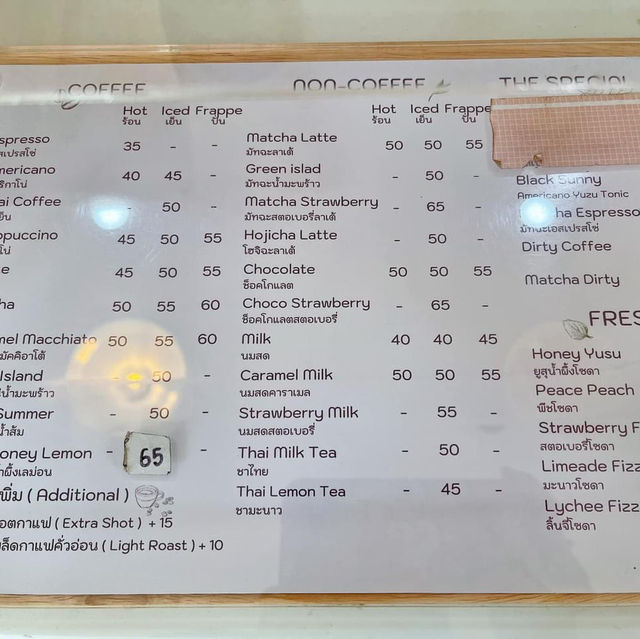 COFFEE
Hot Iced Frappe
ร้อน เย็น ปั่น
spresso 35 - -
สเปรสโซ่
mericano 40 45 -
ริกาโน่
ai Coffee - 50 -
ย็น
ppuccino 45 50 55
โน่
e 45 50 55
ha 50 55 60
mel Macchiato 50 55 60
มัคคิอาโต้
Island - 50 -
น้ำมะพร้าว
Summer - 50 -
น้ำส้ม
oney Lemon - 65 -
ผึ้งเลม่อน
พิ่ม ( Additional )
อตกาแฟ ( Extra Shot ) + 15
ล็ดกาแฟคั่วอ่อน ( Light Roast ) + 10
NON-COFFEE
Hot Iced Frappe
ร้อน เย็น ปั่น
Matcha Latte 50 50 55
มัทฉะลาเต้
Green islad - 50 -
มัทฉะน้ำมะพร้าว
Matcha Strawberry - 65 -
มัทฉะสตอเบอรี่ลาเต้
Hojicha Latte - 50 -
โฮจิฉะลาเต้
Chocolate 50 50 55
ช็อคโกแลต
Choco Strawberry - 65 -
ช็อคโกแลตสตอเบอรี่
Milk 40 40 45
นมสด
Caramel Milk 50 50 55
นมสดคาราเมล
Strawberry Milk - 55 -
นมสดสตอเบอรี่
Thai Milk Tea - 50 -
ชาไทย
Thai Lemon Tea - 45 -
ชามะนาว
THE SPECIAL
Black Sunny
Americano Yuzu Tonic
cha Espresso
มัทฉะเอสเปรสโซ่
Dirty Coffee
Matcha Dirty
FRES
Honey Yusu
ยูสุน้ำผึ้งโซดา
Peace Peach
พีชโซดา
Strawberry F
สตอเบอรี่โซดา
Limeade Fizz
มะนาวโซดา
Lychee Fizz
ลิ้นจี่โซดา